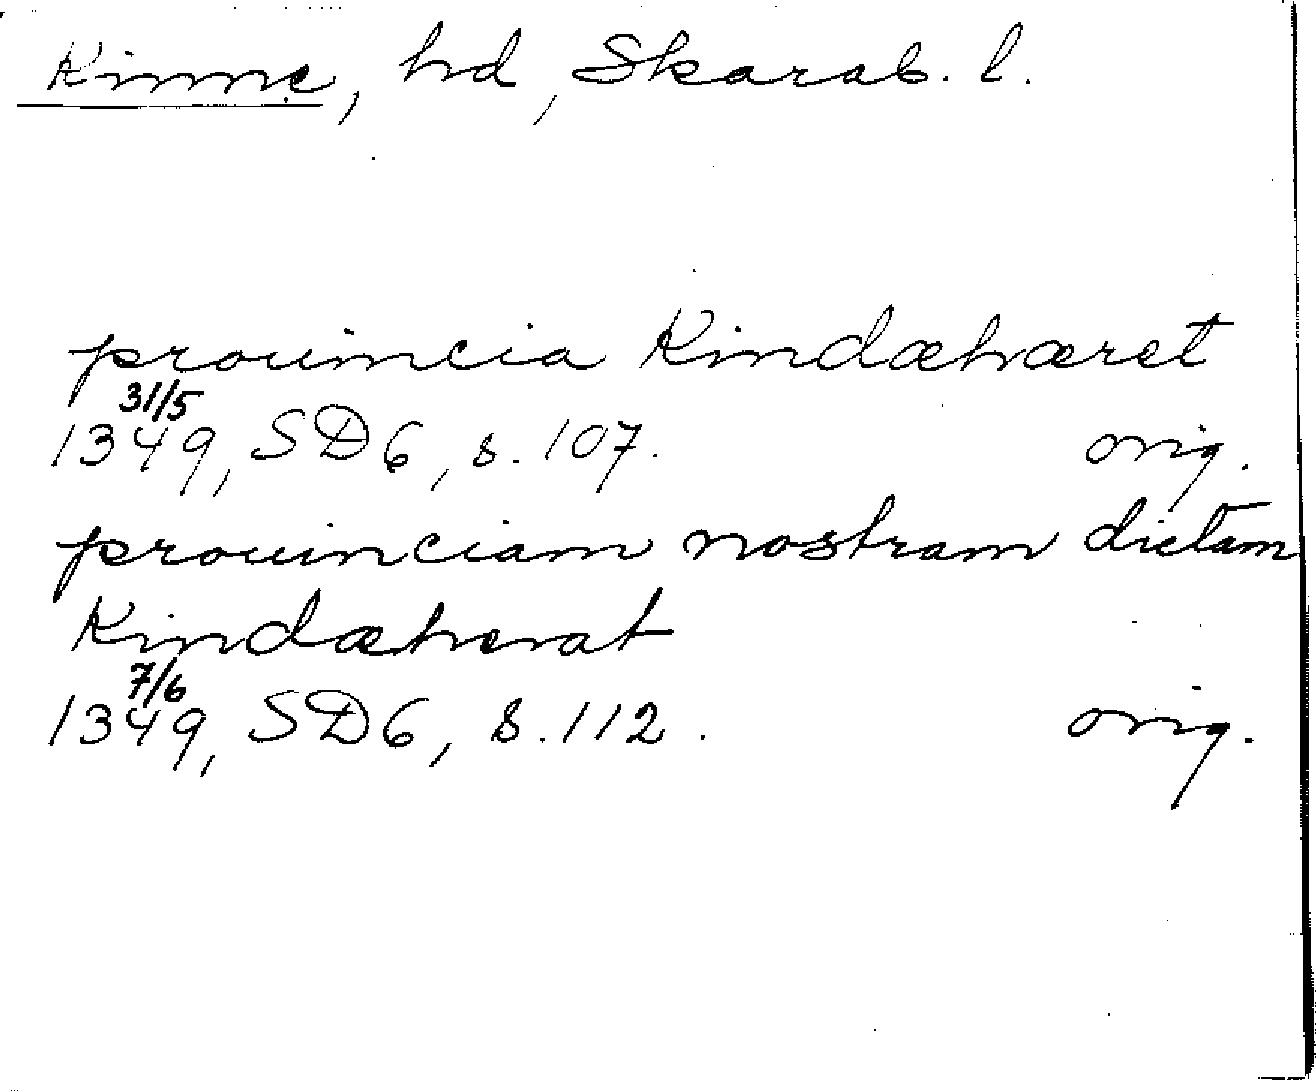 Kinne, hd, Skarab. l.
prouincia Kindæhæret
31/5
1349, SD6, s. 107. orig.
prouinciam nostram dictam
Kindæherat
7/6
1349, SD6, s. 112. orig.